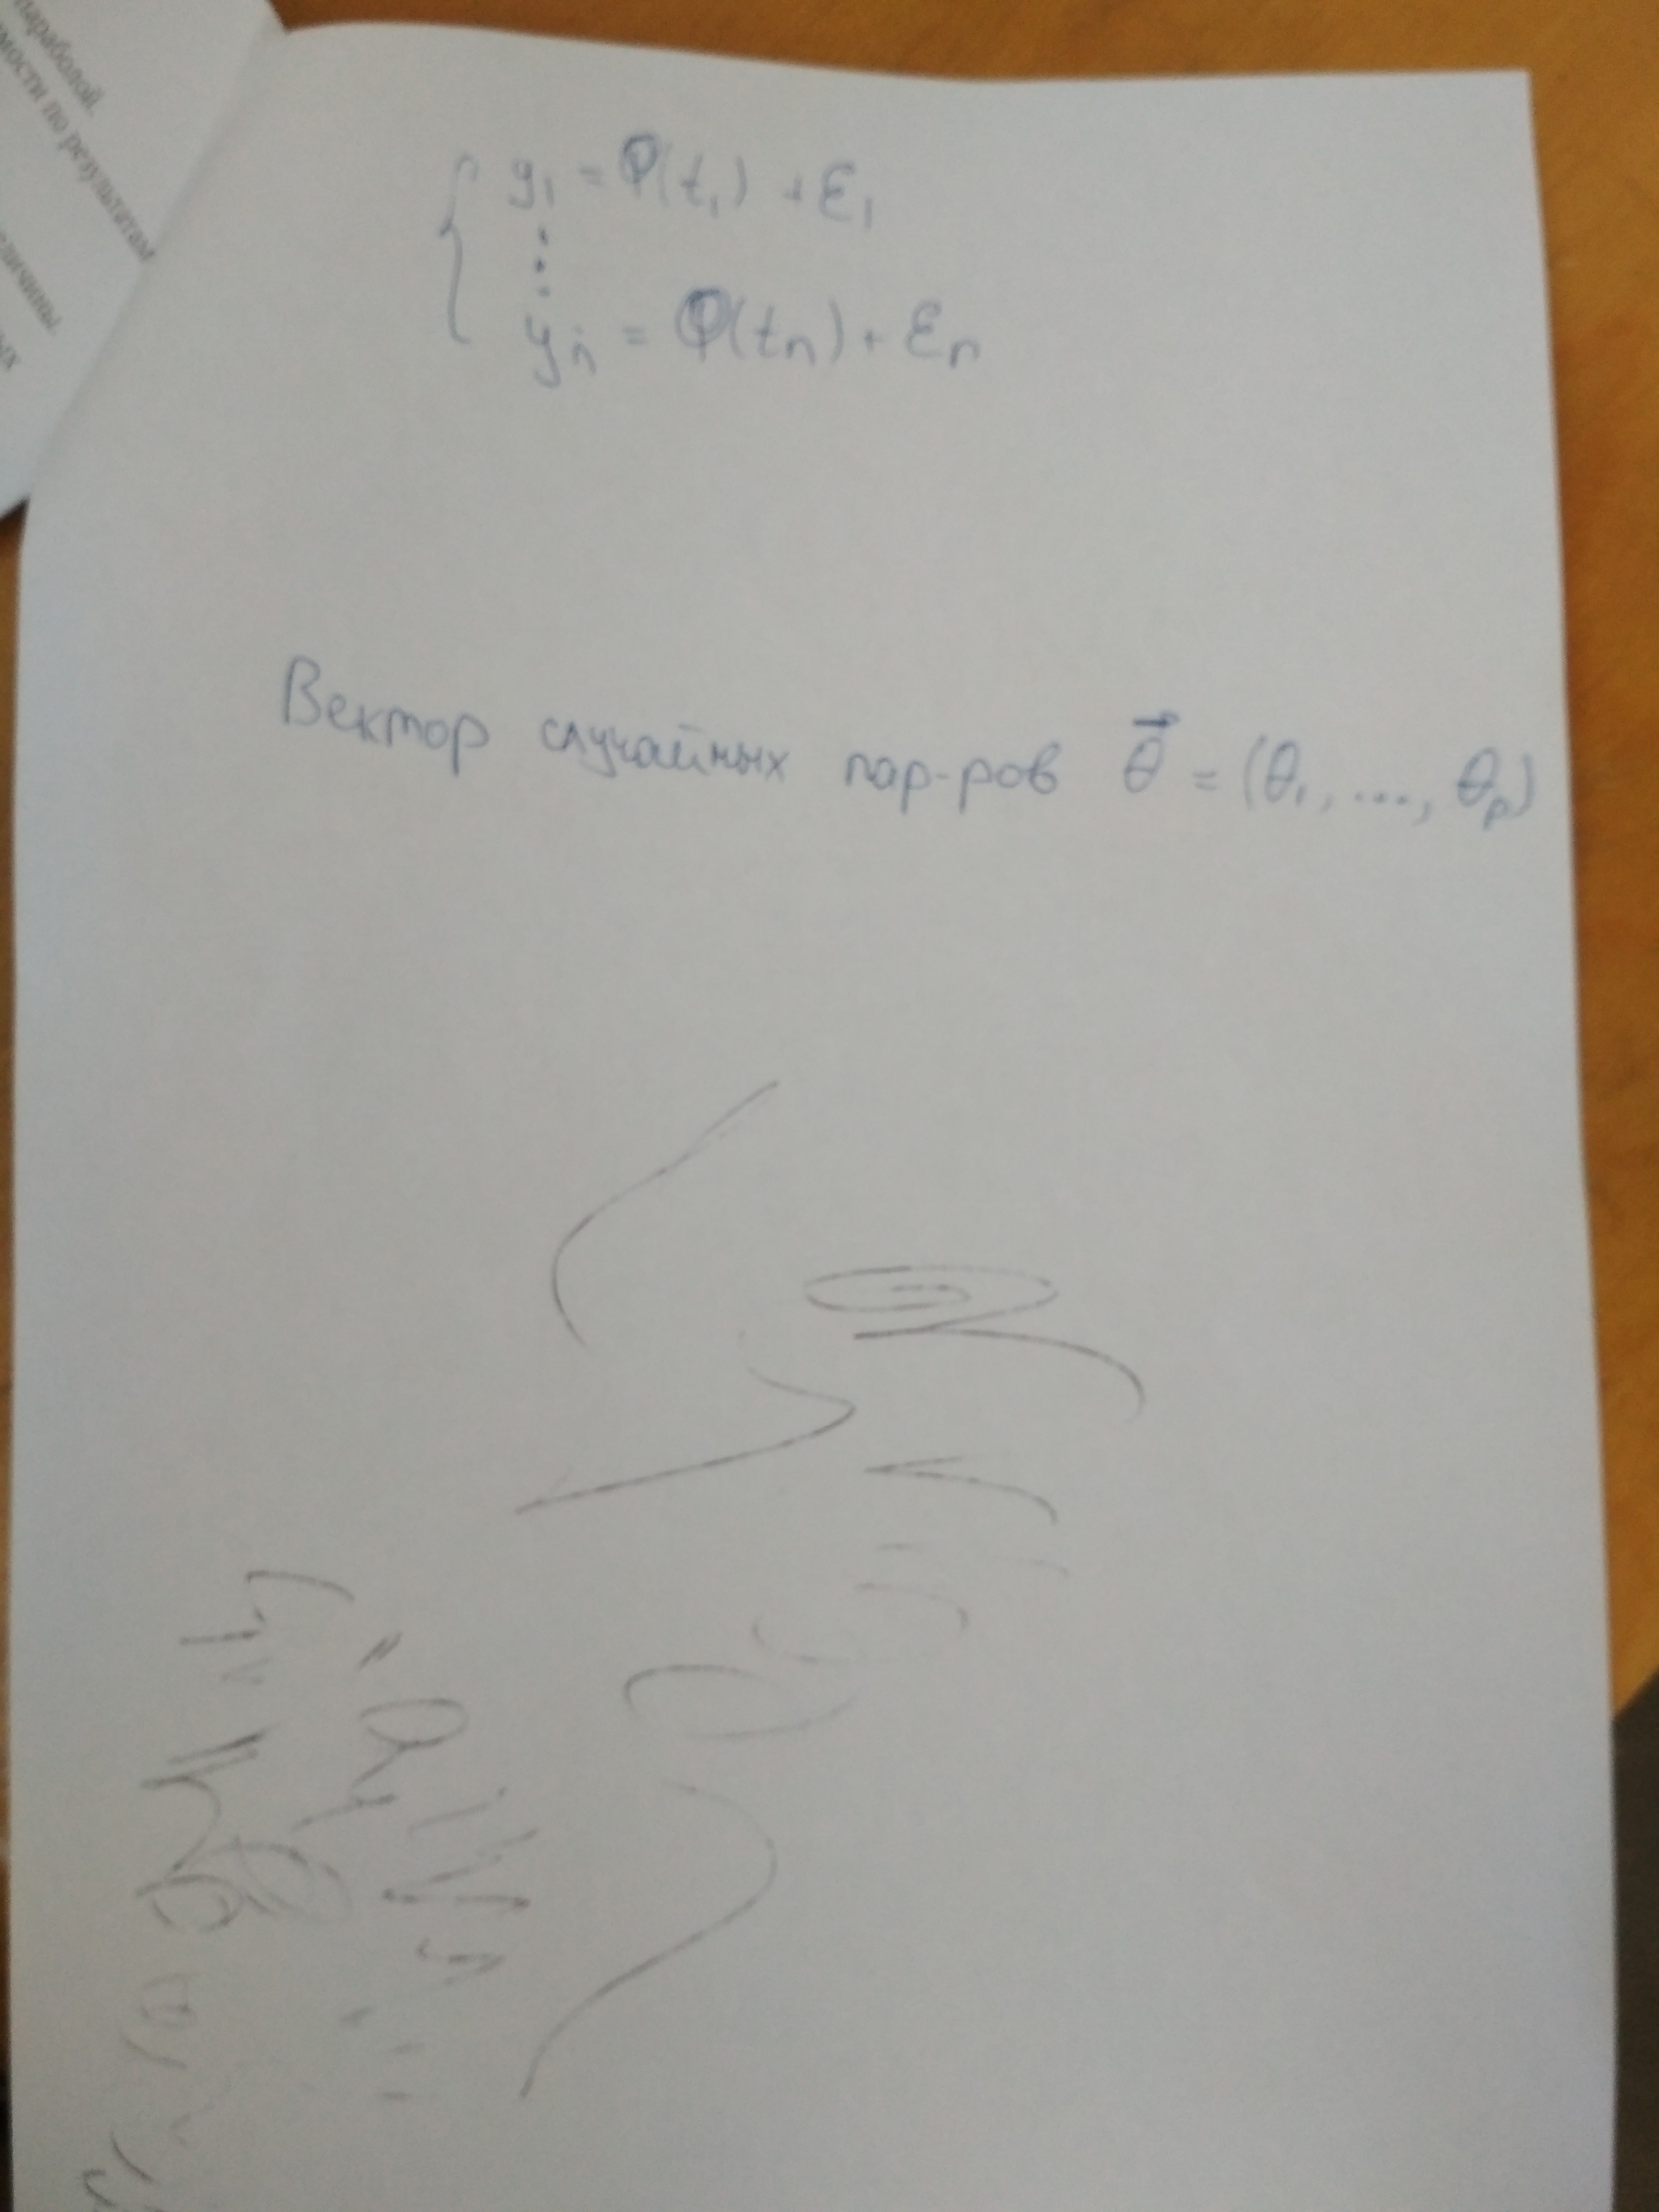 параболой.
мости по результатам
еличины
ых
y₁ = φ(t₁) + ε₁
⋮
yₙ = φ(tₙ) + εₙ
Вектор случайных пар-ров θ⃗ = (θ₁, ..., θₚ)